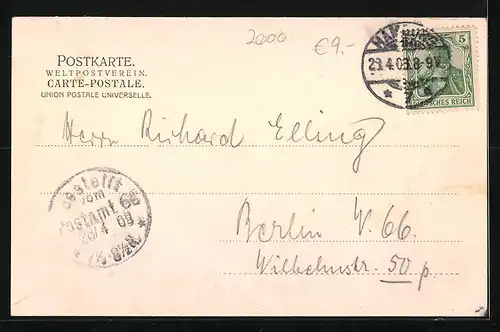 2000
€9,-
POSTKARTE.
WELTPOSTVEREIN.
CARTE-POSTALE.
UNION POSTALE UNIVERSELLE.
5
DEUTSCHES REICH
Herrn Richard Elling
Bestellt
vom
Postamt 66
Berlin W. 66
Wilhelmstr. 50 p.